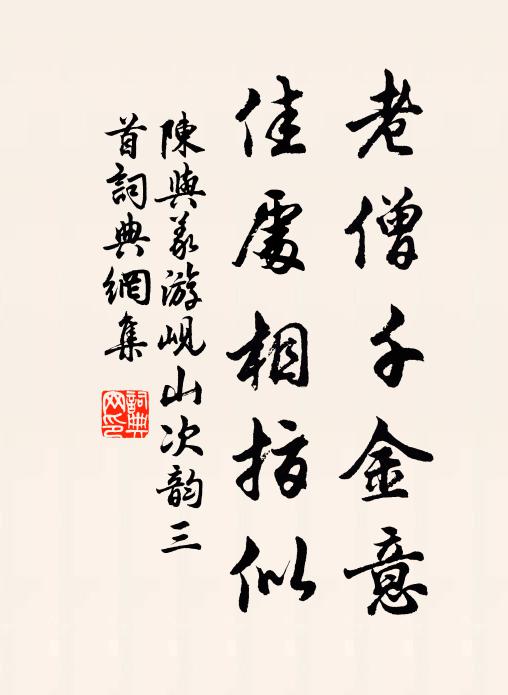 老僧千金意
佳處相指似
陳與義游峴山次韵三
首詞典網集
詞典
网印